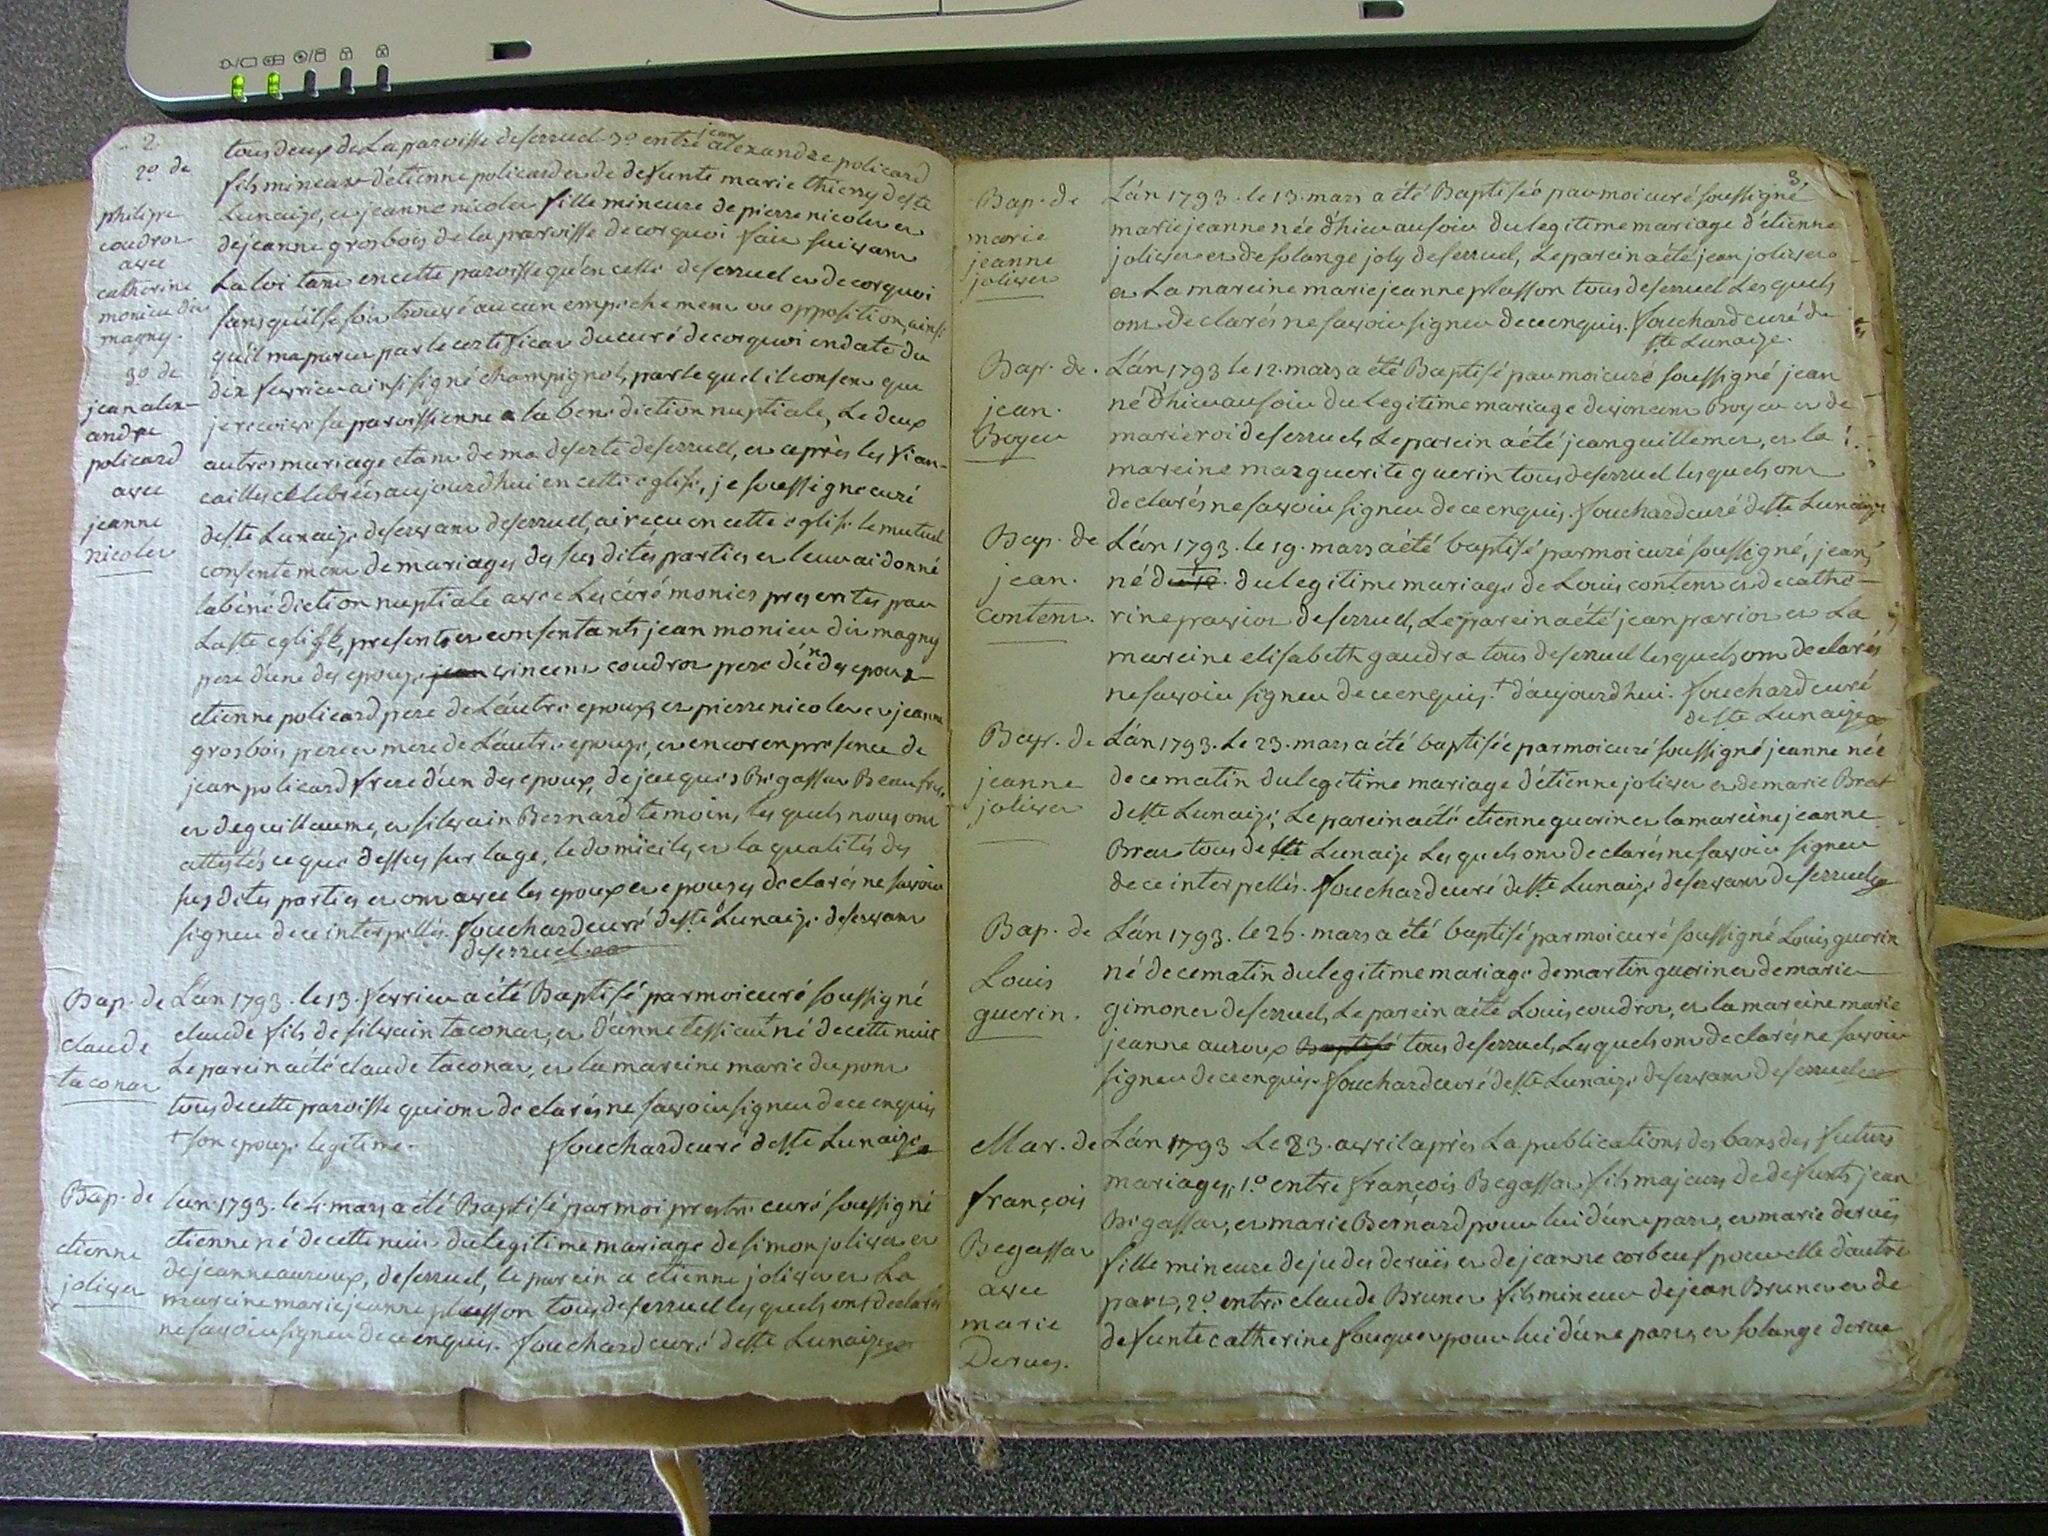 2
2º de
philipe
coudror
avec
catherine
monieu dit
magny.
3º de
jean alex-
andre
policard
avec
jeanne
nicoler
tous deux de La paroisse deserruel. 3º entre jean alexandre policard
fils mineure d'étienne policard er de defunte marie thierry de ste
Lunaize, er jeanne nicoler fille mineure de pierre nicoler er
de jeanne grosbois de la paroisse decorquoi faie suivanr
La loi tanr encette paroisse qu'en celle deserruel er de corquoi
sans qu'il se soir trouvé aucun empechemenr ou opposition, ainsi
qu'il ma paru par le certificar du curé decorquoi endate du
dix fevrieu ainsi signé champignol, parlequel il consenr que
je recoive sa paroissienne a la benediction nuptiale, Le deux
autres mariage etanr de ma deserte deserruel, er après les fian-
cailles celebrées aujourdhui en cette eglise, je soussigne curé
deste Lunaize deservanr deserruel, ai recu en cette eglise le mutuel
consentemenr de mariages des sus dites parties er leur ai donné
la bénédiction nuptiale avec Les cérémonies prescrites par
La ste eglise, presents er consentants jean monieu dit magny
pere d'une des epouse, vincenr coudror pere d'un des epoux
etienne policard pere de L'autre epoux er pierre nicoler er jeanne
grosbois pere er mere de L'autre epouse, er encor en presence de
jean policard frere d'un des epoux, de jacques Begassar Beaufrere
er de guillaume, er silvain Bernard temoins, les quels nous onr
attestés ce que dessus sur lage, le domicile, er la qualités des
sus dites parties er onr avec les epoux er epouses declarés ne savoir
signer de ce interpellés. fouchard curé deste Lunaize deservanr
deserruel
Bap. de
claude
taconar
L'an 1793. le 13. fevrieu a été Baptisé par moi curé soussigné
claude fils de silvain taconar, er d'anne tessiaut + né de cette nuit
Le parein a été claude taconar, er la mareine marie duponr
tous de cette paroisse qui onr declarés ne savoir signer de ce enquis
+ son epouse legitime. fouchard curé deste Lunaize
Bap. de
etienne
joliver
L'an 1793. le 4. mars a été Baptisé par moi prestre curé soussigné
etienne né de cette nuit du legitime mariage de simon joliver er
de jeanne auroux, deserruel, le parein a etienne joliver er La
mareine marie jeanne plasson tous deserruel les quels ont declarés
ne savoir signer de ce enquis. fouchard curé deste Lunaize
3
Bap. de
marie
jeanne
joliver
L'an 1793. le 13. mars a été Baptisée par moi curé soussigné
marie jeanne née d'hier au soir du legitime mariage d'étienne
joliver er de solange joly deserruel, Le parein a été jean joliver
er La mareine marie jeanne plasson tous deserruel Les quels
onr declarés ne savoir signer de ce enquis. fouchard curé de
ste Lunaize.
Bap. de
jean
Boyer
L'an 1793 le 12. mars a été Baptisé par moi curé soussigné jean
né d'hier au soir du legitime mariage de vincenr Boyer er de
marie roi deserruel, Le parein a été jean guillemer, er la
mareine marguerite guerin tous deserruel les quels onr
declarés ne savoir signer de ce enquis. fouchard curé deste Lunaize
Bap. de
jean
contenr.
L'an 1793. le 19. mars a été baptisé par moi curé soussigné, jean
né + du legitime mariage de Louis contenr er de cathe-
rine parior deserruel, Le parein a été jean parior er La
mareine elisabeth gaudra tous deserruel les quels onr declarés
ne savoir signer de ce enquis. + d'aujourdhui. fouchard curé
deste Lunaize
Bap. de
jeanne
joliver
L'an 1793. Le 23. mars a été baptisée par moi curé soussigné jeanne née
de ce matin du legitime mariage d'étienne joliver er de marie Brat
deste Lunaize, Le parein a été etienne guerin er la mareine jeanne
Brar tous deste Lunaize Les quels onr declarés ne savoir signer
de ce interpellés. fouchard curé deste Lunaize deservanr deserruel
Bap. de
Louis
guerin.
L'an 1793. le 26. mars a été baptisé par moi curé soussigné Louis guerin
né de ce matin du legitime mariage de martin guerin er de marie
gimoner deserruel, Le parein a été Louis coudror, er la mareine marie
jeanne auroux Baptisé tous deserruel, Les quels onr declarés ne savoir
signer de ce enquis. fouchard curé deste Lunaize deservanr deserruel
Mar. de
françois
Begassar
avec
marie
Derues.
L'an 1793 Le 23. avril après La publications des bans des futurs
mariages, 1.º entre françois Begassar fils majeurs de defunts jean
Begassar, er marie Bernard pour lui d'une parr, er marie deruës
fille mineure de judes deruës er de jeanne corbeuf pour elle d'autre
parr, 2º entre claude Bruner fils mineur de jean Bruner er de
defunte catherine fouquer pour lui d'une parr, er solange derue